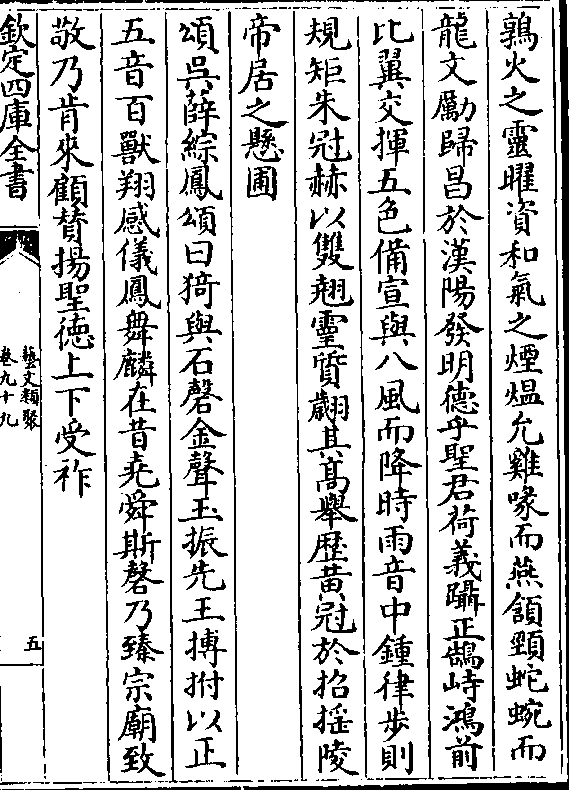 鶉火之靈曜資和氣之煙熅允雞喙而燕頷頸蛇蜿而
龍文勵歸昌於漢陽發明德乎聖君荷義躡正鵠峙鴻前
比翼交揮五色備宣與八風而降時雨音中鍾律步則
規矩朱冠赫以雙翹靈質翽其高舉歴黄冠於招揺陵
帝居之懸圃
頌吳薛綜鳳頌曰猗與石磬金聲玉振先王搏拊以正
五音百獸翔感儀鳳舞麟在昔堯舜斯磬乃臻宗廟致
敬乃肯來顧賛揚聖徳上下受祚
欽定四庫全書
藝文類聚
卷九十九
五